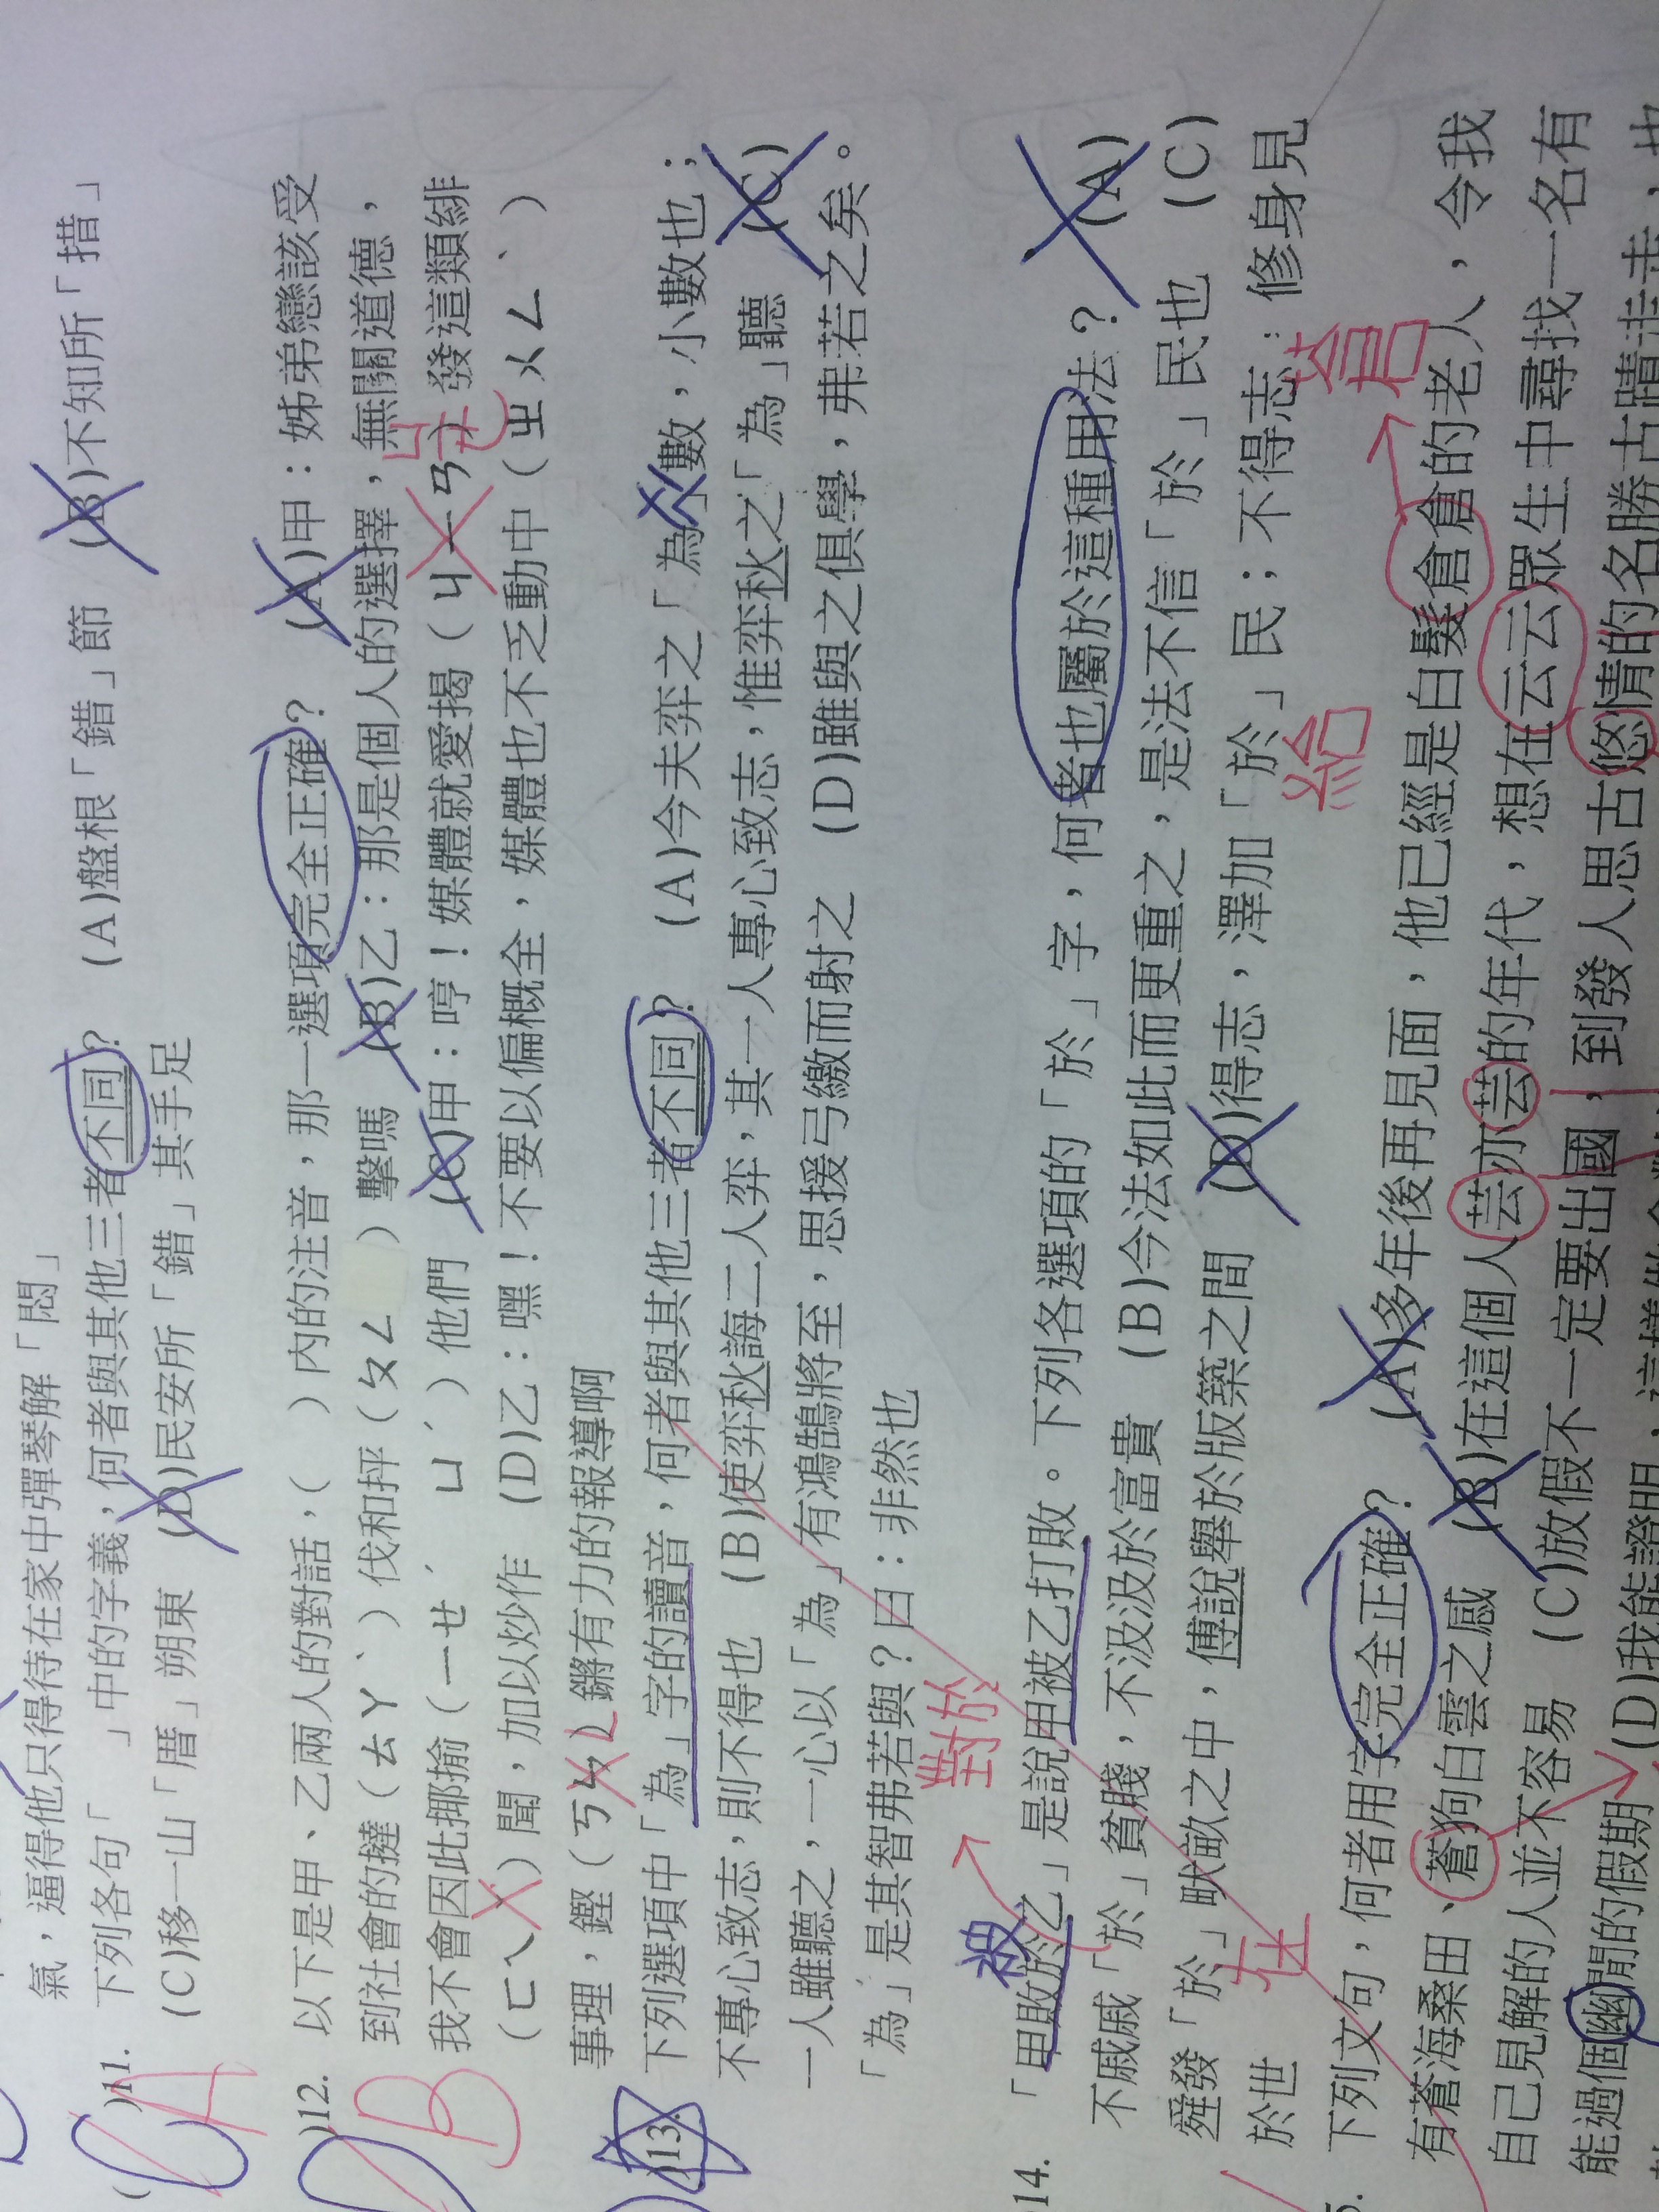 氣，逼得他只得待在家中彈琴解「悶」
( )11. 下列各句「　」中的字義，何者與其他三者不同？　(A)盤根「錯」節　(B)不知所「措」
(C)移一山「厝」朔東　(D)民安所「錯」其手足
A
)12. 以下是甲、乙兩人的對話，(　)內的注音，那一選項完全正確？　(A)甲：姊弟戀該受
到社會的撻（ㄊㄚˋ）伐和抨（ㄆㄥ　）擊嗎　(B)乙：那是個人的選擇，無關道德，
我不會因此揶揄（ㄧㄝˊ　ㄩˊ）他們　(C)甲：哼！媒體就愛揭（ㄐㄧㄢ）發這類緋
ㄐㄧㄝ
（ㄏㄟˋ）聞，加以炒作　(D)乙：嘿！不要以偏概全，媒體也不乏動中（ㄓㄨㄥˋ）
事理，鏗（ㄎㄣ）鏘有力的報導啊
ㄥ
B
)13. 下列選項中「為」字的讀音，何者與其他三者不同？　(A)今夫弈之「為」數，小數也；
不專心致志，則不得也　(B)使弈秋誨二人弈，其一人專心致志，惟弈秋之「為」聽　(C)
一人雖聽之，一心以「為」有鴻鵠將至，思援弓繳而射之　(D)雖與之俱學，弗若之矣。
「為」是其智弗若與？曰：非然也
對於
被
14. 「甲敗於乙」是說甲被乙打敗。下列各選項的「於」字，何者也屬於這種用法？　(A)
不戚戚「於」貧賤，不汲汲於富貴　(B)今法如此而更重之，是法不信「於」民也　(C)
舜發「於」畎畝之中，傅說舉於版築之間　(D)得志，澤加「於」民；不得志，修身見
在
給
於世
蒼
5. 下列文句，何者用字完全正確？　(A)多年後再見面，他已經是白髮倉倉的老人，令我
有蒼海桑田、蒼狗白雲之感　(B)在這個人芸亦芸的年代，想在云云眾生中尋找一名有
自己見解的人並不容易　(C)放假不一定要出國，到發人思古悠情的名勝古蹟走走，也
能過個幽閒的假期　(D)我能證明，這樣他